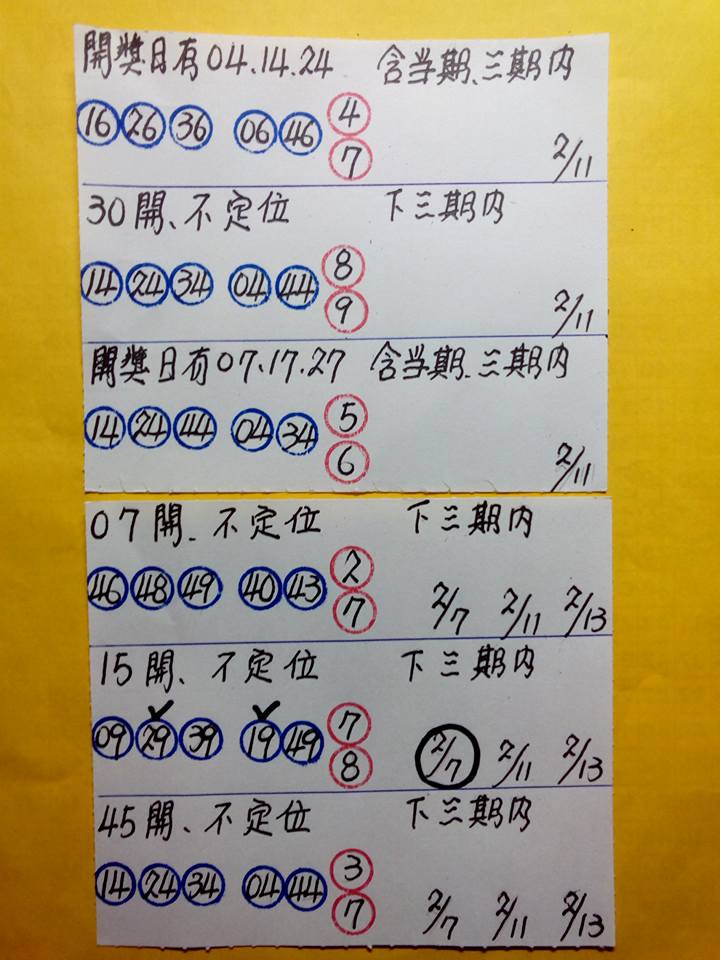 開獎日有04.14.24 含当期、三期内
16 26 36 06 46 4 7 2/11
30開、不定位 下三期内
14 24 34 04 44 8 9 2/11
開獎日有07.17.27 含当期、三期内
14 24 44 04 34 5 6 2/11
07開、不定位 下三期内
46 48 49 40 43 2 7 2/7 2/11 2/13
15開、不定位 下三期内
09 29 39 19 49 7 8 2/7 2/11 2/13
45開、不定位 下三期内
14 24 34 04 44 3 7 2/7 2/11 2/13